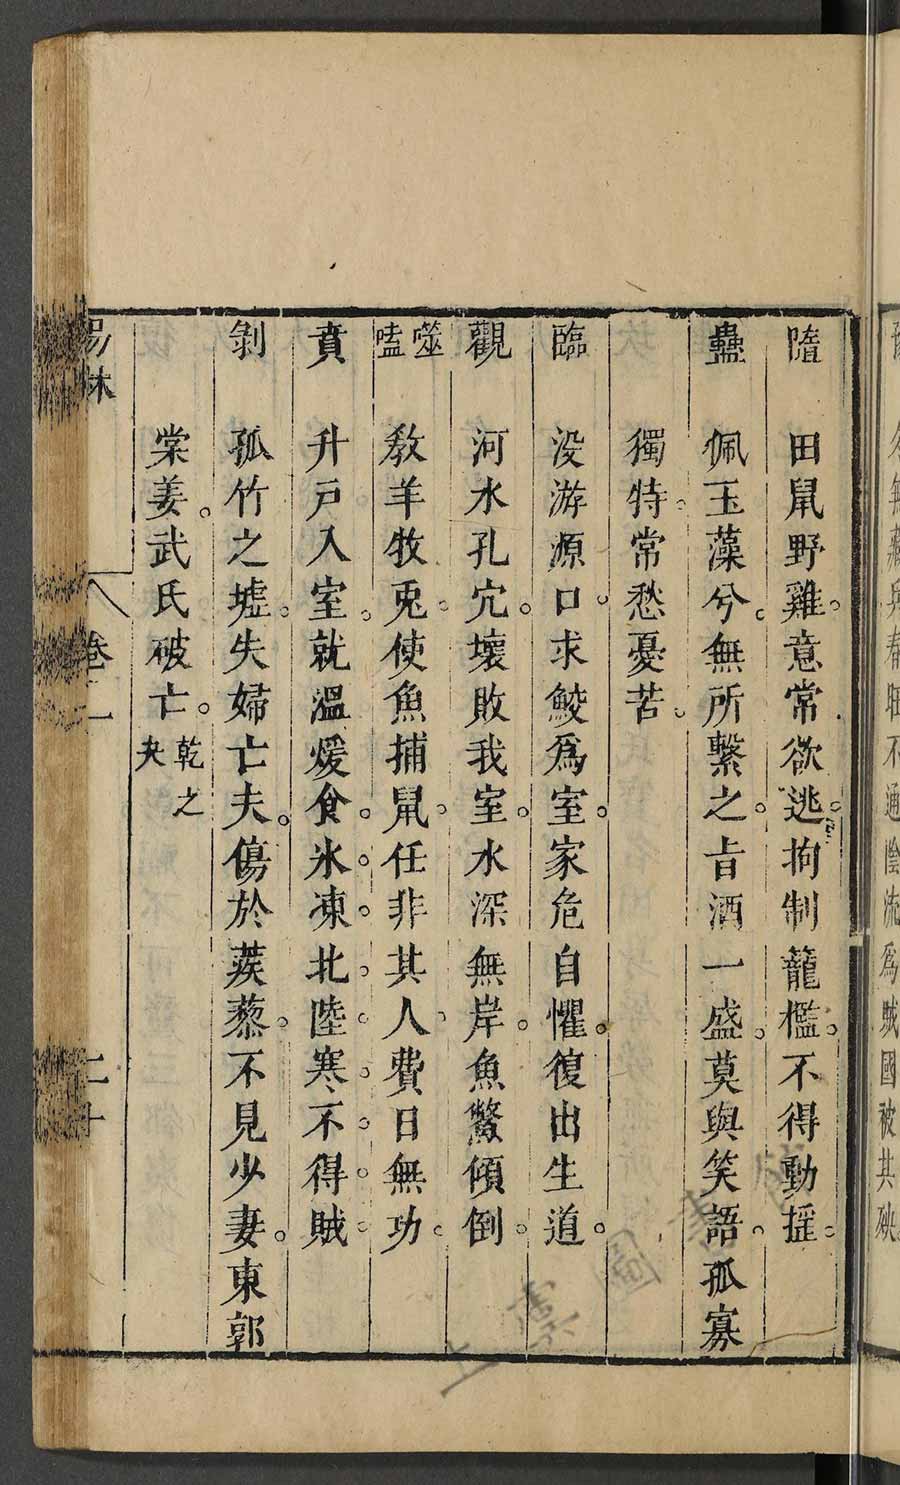 隨　田鼠野雞意常欲逃拘制籠檻不得動搖
蠱　佩玉蘂兮無所繫之旨酒一盛莫與笑語孤寡
獨特常愁憂苦
臨　沒游源口求鮫為室家危自懼復出生道
觀　河水孔穴壞敗我室水深無岸魚鱉傾倒
噬嗑　教羊牧兎使魚捕鼠任非其人費日無功
賁　升戶入室就溫煖食氷凍北陸寒不得賊
剝　孤竹之墟失婦亡夫傷於蒺藜不見少妻東郭
棠姜武氏破亡乾之夬
易林
卷一
二十